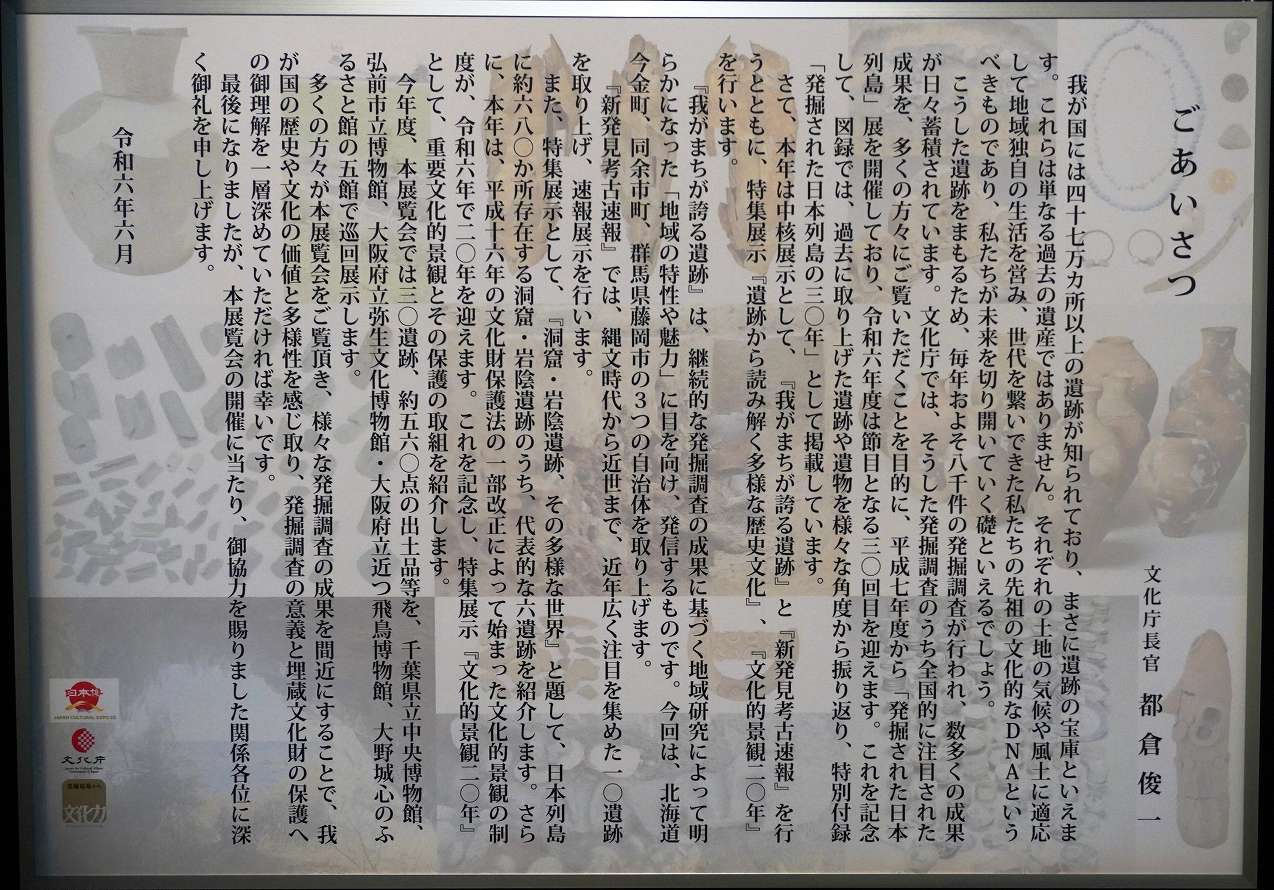 ごあいさつ
文化庁長官　都倉俊一
我が国には四十七万カ所以上の遺跡が知られており、まさに遺跡の宝庫といえま
す。これらは単なる過去の遺産ではありません。それぞれの土地の気候や風土に適応
して地域独自の生活を営み、世代を繋いできた私たちの先祖の文化的なＤＮＡという
べきものであり、私たちが未来を切り開いていく礎といえるでしょう。
こうした遺跡をまもるため、毎年およそ八千件の発掘調査が行われ、数多くの成果
が日々蓄積されています。文化庁では、そうした発掘調査のうち全国的に注目された
成果を、多くの方々にご覧いただくことを目的に、平成七年度から「発掘された日本
列島」展を開催しており、令和六年度は節目となる三〇回目を迎えます。これを記念
して、図録では、過去に取り上げた遺跡や遺物を様々な角度から振り返り、特別付録
「発掘された日本列島の三〇年」として掲載しています。
さて、本年は中核展示として、『我がまちが誇る遺跡』と『新発見考古速報』を行
うとともに、特集展示『遺跡から読み解く多様な歴史文化』、『文化的景観二〇年』
を行います。
『我がまちが誇る遺跡』は、継続的な発掘調査の成果に基づく地域研究によって明
らかになった「地域の特性や魅力」に目を向け、発信するものです。今回は、北海道
今金町、同余市町、群馬県藤岡市の３つの自治体を取り上げます。
『新発見考古速報』では、縄文時代から近世まで、近年広く注目を集めた一〇遺跡
を取り上げ、速報展示を行います。
また、特集展示として、『洞窟・岩陰遺跡、その多様な世界』と題して、日本列島
に約六八〇か所存在する洞窟・岩陰遺跡のうち、代表的な六遺跡を紹介します。さら
に、本年は、平成十六年の文化財保護法の一部改正によって始まった文化的景観の制
度が、令和六年で二〇年を迎えます。これを記念し、特集展示『文化的景観二〇年』
として、重要文化的景観とその保護の取組を紹介します。
今年度、本展覧会では三〇遺跡、約五六〇点の出土品等を、千葉県立中央博物館、
弘前市立博物館、大阪府立弥生文化博物館・大阪府立近つ飛鳥博物館、大野城心のふ
るさと館の五館で巡回展示します。
多くの方々が本展覧会をご覧頂き、様々な発掘調査の成果を間近にすることで、我
が国の歴史や文化の価値と多様性を感じ取り、発掘調査の意義と埋蔵文化財の保護へ
の御理解を一層深めていただければ幸いです。
最後になりましたが、本展覧会の開催に当たり、御協力を賜りました関係各位に深
く御礼を申し上げます。
令和六年六月
日本博
JAPAN CULTURAL EXPO 2.0
文化庁
文化力